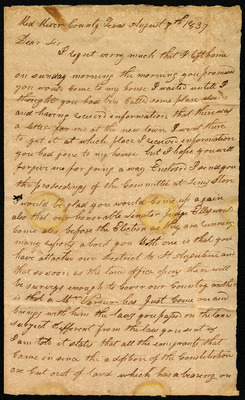 Red River County Texas August 7th 1837
Dear Sir
I regret verry much that I left home
on sunday morning the morning you promised
you would come to my house I waited untill I
thought you had bin Called some place else
and having received information that there was
a letter for me at the new town I went there
to get it at which place I received information
you had gone to my house but I hope you will
forgive me for going away Enclosed I send you
the proceedings of the Committee at
I would be glad you would Come up again
also that our honorable senator Judge Ellis would
Come also before the Election as they are
many reports a bout you both one is that you
have attached our district to
that so soon as the land office opens there will
be surveys enough to Cover our Country another
is that a Mr has Just Come on and
brings with him the laws you passed on the land
subject different from the law you sent us
I am told it states that all the emigrants that
Came in since the adoption of the Constitution
are Cut out of land which has a bearing on